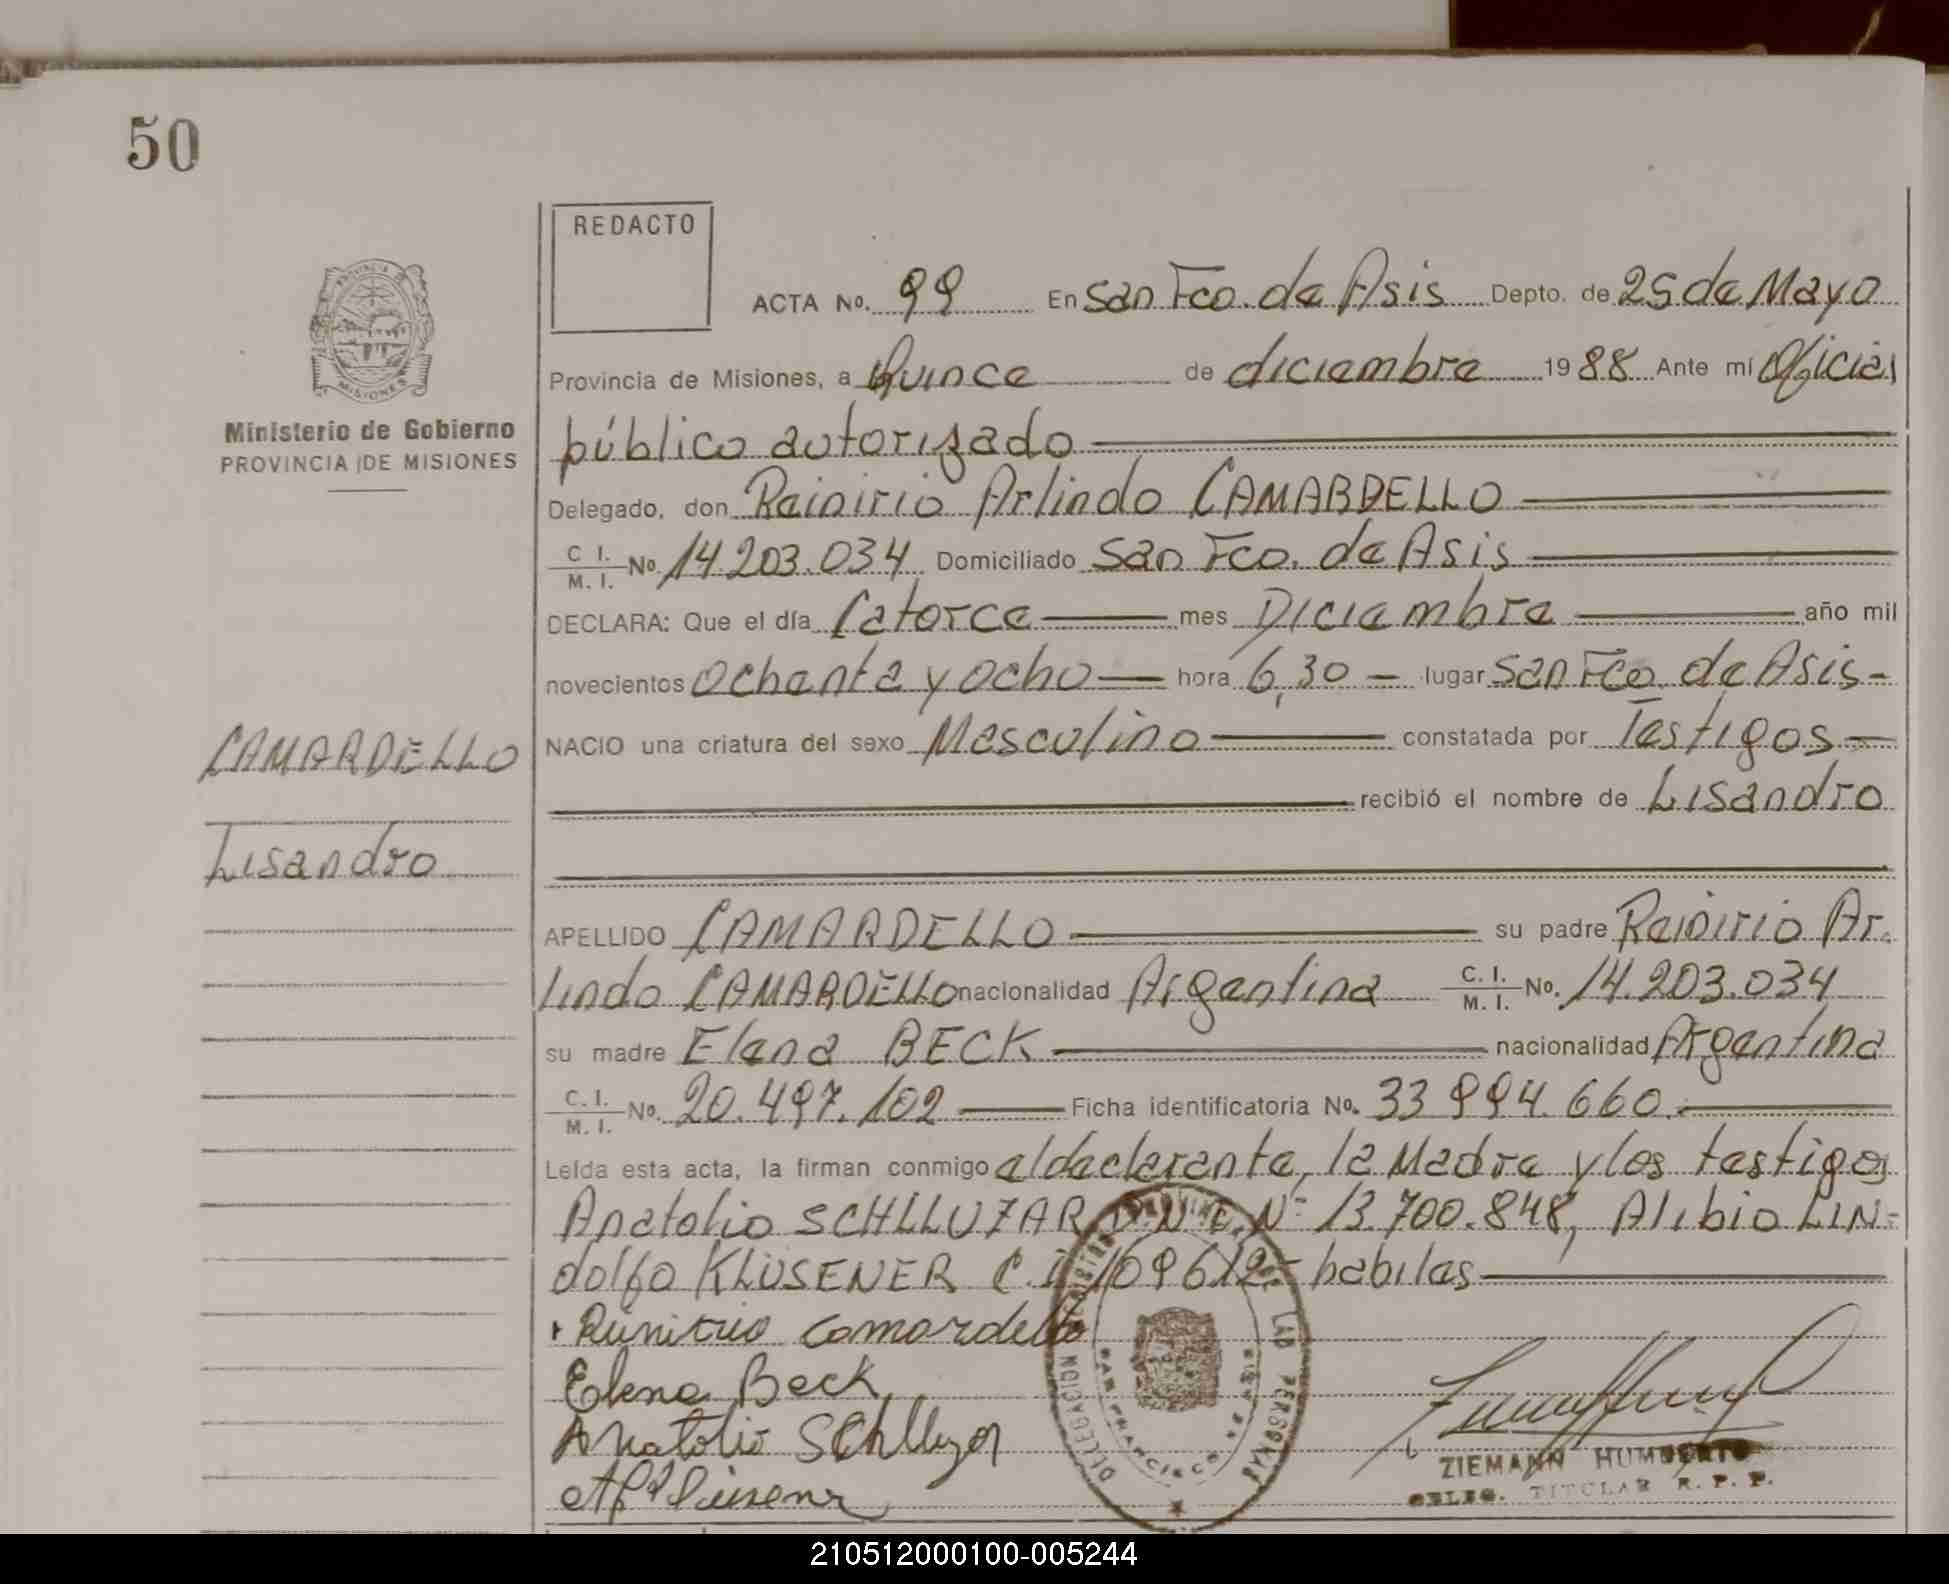 50
REDACTO
ACTA No. 99 En San Fco. de Asis Depto. de 25 de Mayo
Provincia de Misiones, a Quince de diciembre 1988 Ante mí Oficial
público autorizado
PROVINCIA DE MISIONES
Ministerio de Gobierno
PROVINCIA DE MISIONES
Delegado, don Reinirio Arlindo CAMARDELLO
C. I. / M. I. No. 14.203.034 Domiciliado San Fco. de Asis
DECLARA: Que el día Catorce mes Diciembre año mil
novecientos Ochenta y ocho hora 6,30 lugar San Fco. de Asis
CAMARDELLO
NACIO una criatura del sexo Masculino constatada por Testigos
recibió el nombre de Lisandro
Lisandro
APELLIDO CAMARDELLO su padre Reinirio Ar-
lindo CAMARDELLO nacionalidad Argentina C. I. / M. I. No. 14.203.034
su madre Elena BECK nacionalidad Argentina
C. I. / M. I. No. 20.497.102 Ficha identificatoria No. 33 994.660.
Leída esta acta, la firman conmigo el declarante, la Madre y los testigos
Anatolio SCHLLUZAR D.N.I. Nº 13.700.848, Alibio LIN-
dolfo KLÜSENER C.I. 109612 habiles
Camardello
Elena Beck
Anatolio
DELEGACION
LAS PERSONAS
SAN FRANCISCO DE ASIS
ZIEMANN HUMBERTO
DELEG. TITULAR R. P. P.
210512000100-005244